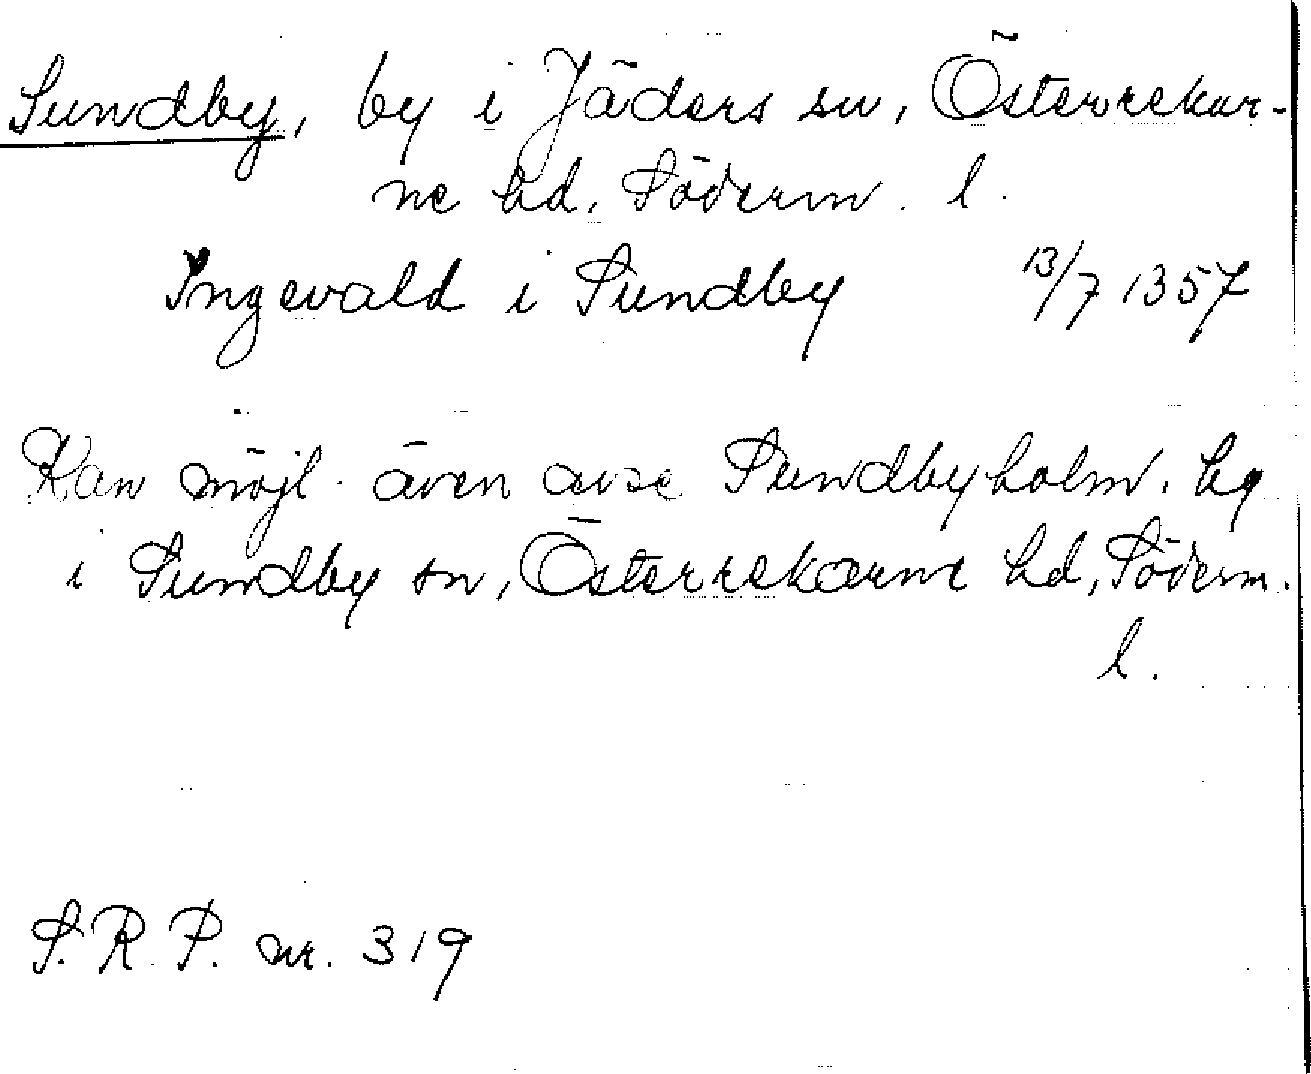 Sundby, by i Jäders sn, Österrekar-
ne hd, Söderm. l.
Ingevald i Sundby 13/7 1357
Kan möjl. även avse Sundbyholm, hg
i Sundby sn, Österrekarne hd, Söderm.
l.
S.R.P. nr. 319